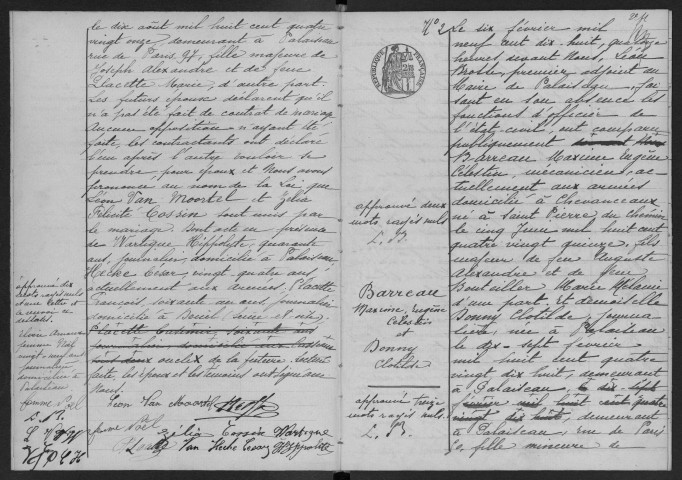 le dix août mil huit cent quatre
vingt onze, demeurant à Palaiseau
rue de Paris 97, fille majeure de
Joseph Alexandre et de feue
Placette Marie, d'autre part.
Les futurs époux déclarent qu'il
n'a pas été fait de contrat de mariage
Aucune opposition n'ayant été
faite, les contractants ont déclaré
l'un après l'autre vouloir se
prendre pour époux et Nous avons
prononcé au nom de la Loi que
Léon Van Moortel et Zélia
Félicité Cossin sont unis par
le mariage. Dont acte en présence
de Wartique Hippolyte, quarante
ans, journalier, domicilié à Palaiseau
Hecke César, vingt quatre ans
actuellement aux armées, Placette
François, soixante ans, journalier
domicilié à
oncle de la future. Lecture
faite, les époux et les témoins ont signé avec
Nous.
Léon Van Moortel
femme Noël
Zélia Cossin Wartique
Van Hecke César Hippolyte
approuvé dix
mots rayés nuls
et une lettre et
à
femme Noël
vingt neuf ans
journalière
domiciliée à
Palaiseau
femme Noël
L. B.
N° 2
RÉPUBLIQUE FRANÇAISE
Le six février mil
neuf cent dix huit, quatorze
heures devant Nous, Léon
Brosse, premier adjoint au
Maire de Palaiseau, fai
sant en son absence les
fonctions d'officier de
l'état-civil, ont comparu
publiquement
Barreau Maxime Eugène
Célestin, mécanicien, ac
tuellement aux armées
domicilié à Chevanceaux
né à Saint Pierre du Chemin
le cinq juin mil huit cent
quatre vingt quinze, fils
majeur de feu Auguste
Alexandre et de feue
Boutviller Marie Mélanie
d'une part, et demoiselle
Bonny Clotilde, journa
lière, née à Palaiseau
le dix-sept février
mil huit cent quatre
vingt dix huit, demeurant
à Palaiseau, le dix-sept
février mil huit cent quatre
vingt dix huit, demeurant
à Palaiseau, rue de Paris
fille mineure de
approuvé deux
mots rayés nuls.
L. B.
Barreau
Maxime, Eugène
Célestin
et
Bonny
Clotilde
approuvé treize
mots rayés nuls.
L. B.